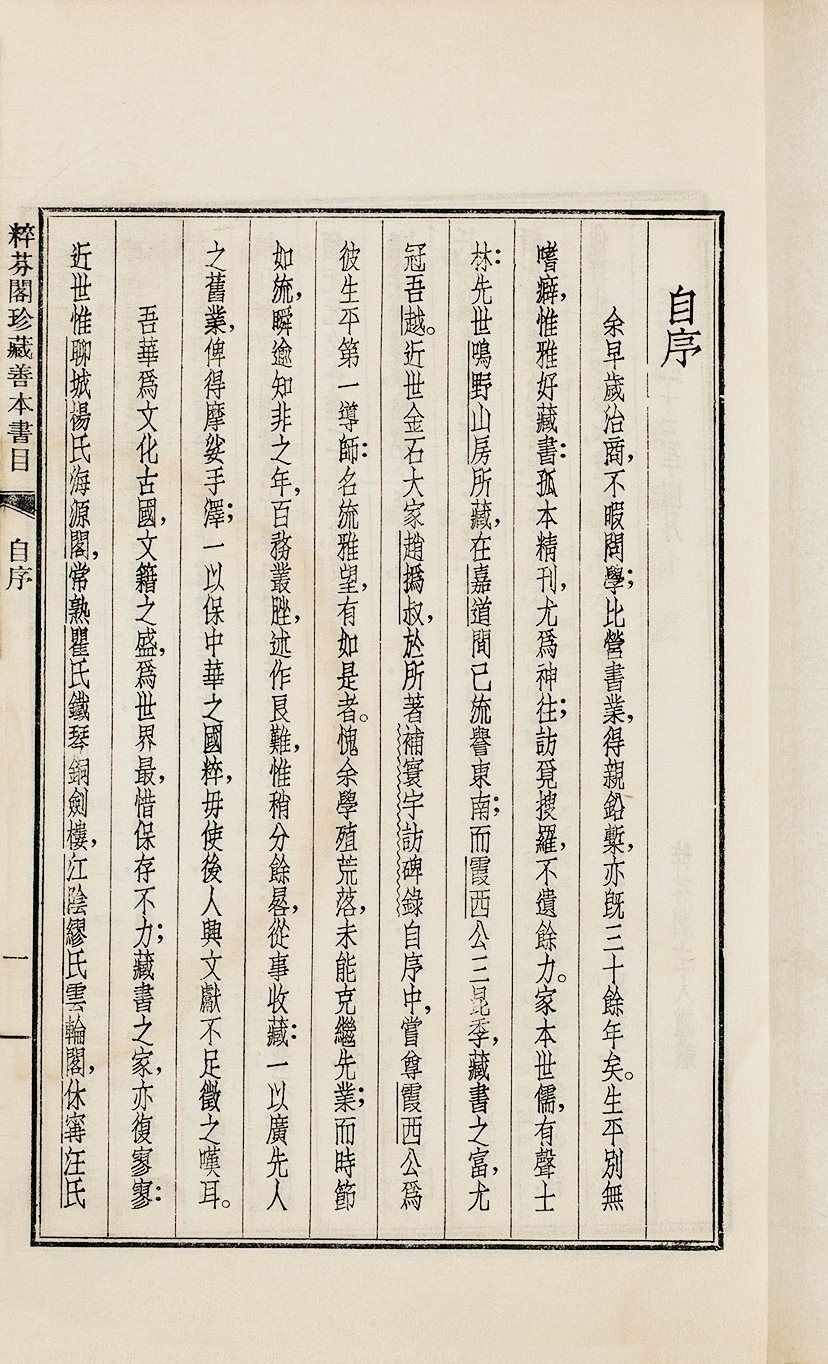 自序
余早歲治商，不暇問學；比營書業，得親鉛槧，亦旣三十餘年矣。生平別無
嗜癖，惟雅好藏書：孤本精刊，尤爲神往；訪覓搜羅，不遺餘力。家本世儒，有聲士
林：先世鳴野山房所藏，在嘉道間已流譽東南；而霞西公三昆季，藏書之富，尤
冠吾越。近世金石大家趙撝叔，於所著補寰宇訪碑錄自序中，嘗尊霞西公爲
彼生平第一導師：名流雅望，有如是者。愧余學殖荒落，未能克繼先業；而時節
如流，瞬逾知非之年，百務叢脞，述作艮難，惟稍分餘晷，從事收藏：一以廣先人
之舊業，俾得摩挲手澤；一以保中華之國粹，毋使後人興文獻不足徵之嘆耳。
吾華爲文化古國，文籍之盛，爲世界最，惜保存不力；藏書之家，亦復寥寥：
近世惟聊城楊氏海源閣，常熟瞿氏鐵琴銅劍樓，江陰繆氏雲輪閣，休寗汪氏
粹芬閣珍藏善本書目 自序 一